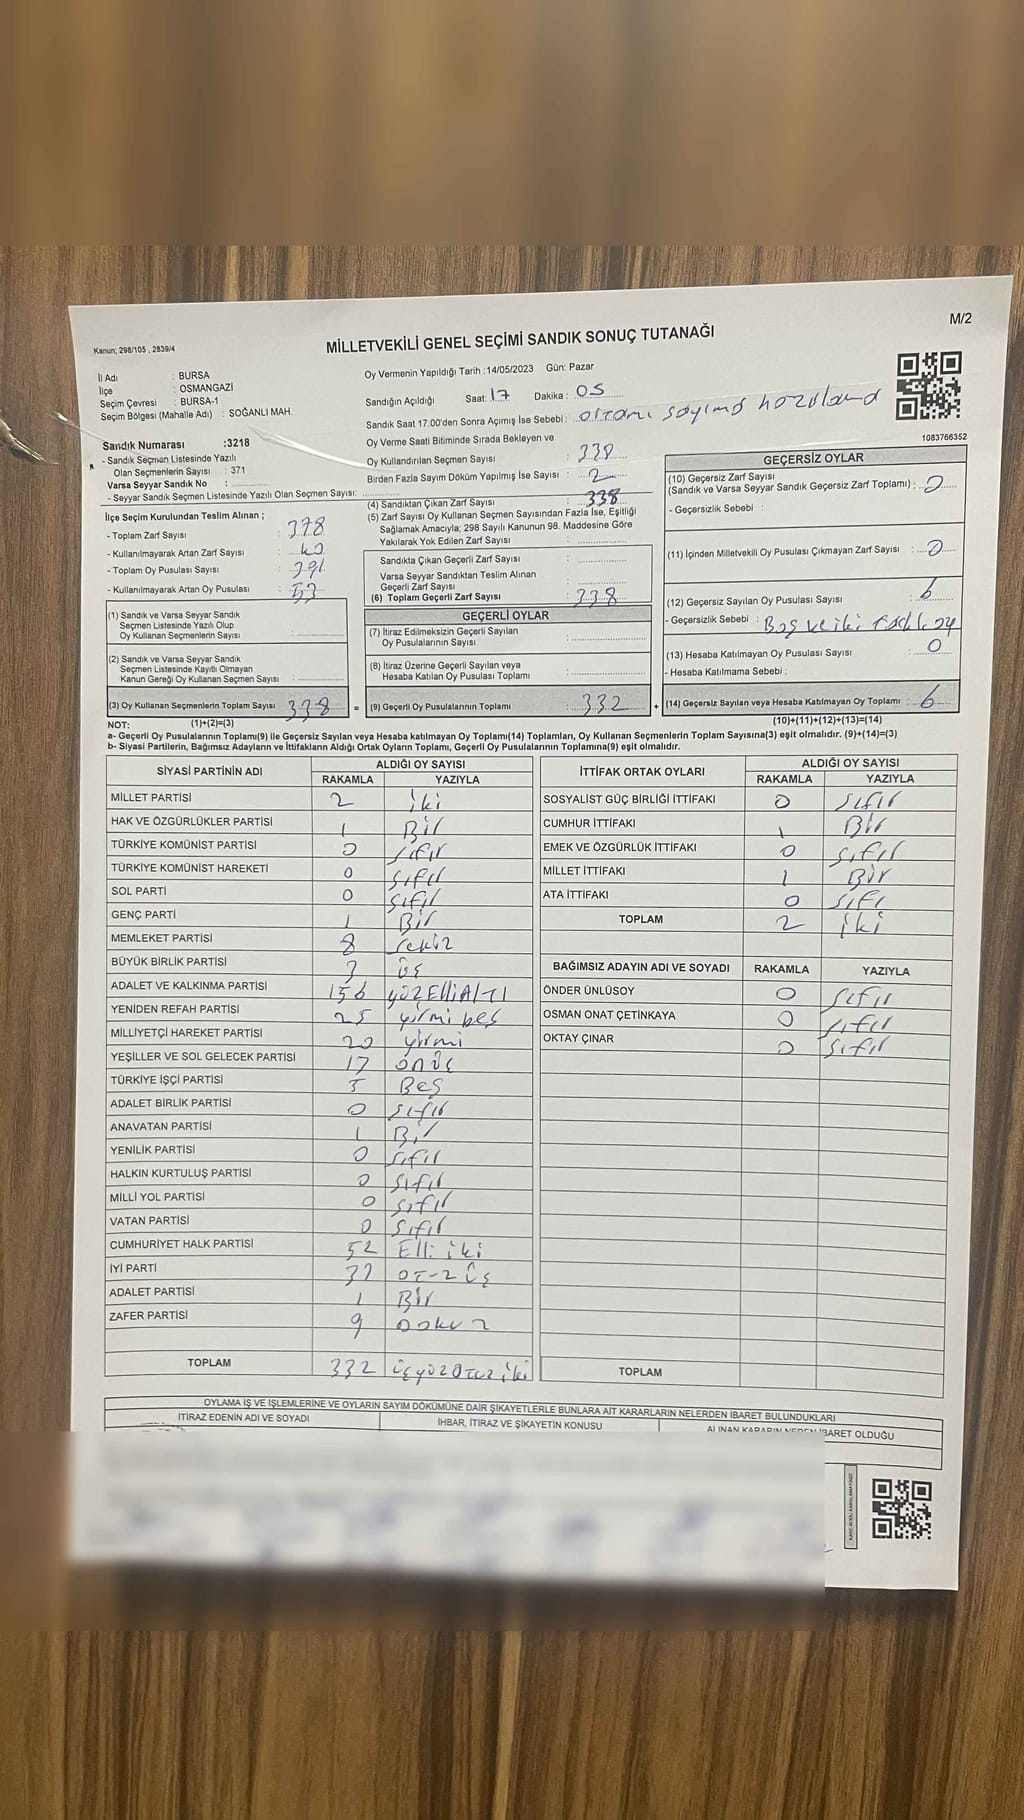 M/2
Kanun; 298/105 , 2839/4
MİLLETVEKİLİ GENEL SEÇİMİ SANDIK SONUÇ TUTANAĞI
İl Adı : BURSA
İlçe : OSMANGAZİ
Seçim Çevresi : BURSA-1
Seçim Bölgesi (Mahalle Adı) : SOĞANLI MAH.
Sandık Numarası :3218
- Sandık Seçmen Listesinde Yazılı
Olan Seçmenlerin Sayısı : 371
Varsa Seyyar Sandık No :
- Seyyar Sandık Seçmen Listesinde Yazılı Olan Seçmen Sayısı:
Oy Vermenin Yapıldığı Tarih :14/05/2023 Gün: Pazar
Sandığın Açıldığı Saat: 17 Dakika : 05
Sandık Saat 17.00'den Sonra Açımış İse Sebebi:
Oy Verme Saati Bitiminde Sırada Bekleyen ve
Oy Kullandırılan Seçmen Sayısı : 338
Birden Fazla Sayım Döküm Yapılmış İse Sayısı : 2
1083766352
İlçe Seçim Kurulundan Teslim Alınan ;
- Toplam Zarf Sayısı : 378
- Kullanılmayarak Artan Zarf Sayısı : 40
- Toplam Oy Pusulası Sayısı : 391
- Kullanılmayarak Artan Oy Pusulası : 53
(1) Sandık ve Varsa Seyyar Sandık
Seçmen Listesinde Yazılı Olup
Oy Kullanan Seçmenlerin Sayısı :
(2) Sandık ve Varsa Seyyar Sandık
Seçmen Listesinde Kayıtlı Olmayan
Kanun Gereği Oy Kullanan Seçmen Sayısı :
(3) Oy Kullanan Seçmenlerin Toplam Sayısı 338 =
(4) Sandıktan Çıkan Zarf Sayısı : 338
(5) Zarf Sayısı Oy Kullanan Seçmen Sayısından Fazla İse, Eşitliği
Sağlamak Amacıyla; 298 Sayılı Kanunun 98. Maddesine Göre
Yakılarak Yok Edilen Zarf Sayısı :
Sandıkta Çıkan Geçerli Zarf Sayısı :
Varsa Seyyar Sandıktan Teslim Alınan
Geçerli Zarf Sayısı :
(6) Toplam Geçerli Zarf Sayısı : 338
GEÇERLİ OYLAR
(7) İtiraz Edilmeksizin Geçerli Sayılan
Oy Pusulalarının Sayısı :
(8) İtiraz Üzerine Geçerli Sayılan veya
Hesaba Katılan Oy Pusulası Toplamı :
(9) Geçerli Oy Pusulalarının Toplamı : 332 +
GEÇERSİZ OYLAR
(10) Geçersiz Zarf Sayısı
(Sandık ve Varsa Seyyar Sandık Geçersiz Zarf Toplamı) : 0
- Geçersizlik Sebebi :
(11) İçinden Milletvekili Oy Pusulası Çıkmayan Zarf Sayısı : 0
(12) Geçersiz Sayılan Oy Pusulası Sayısı : 6
- Geçersizlik Sebebi : Boş ve iki oy
(13) Hesaba Katılmayan Oy Pusulası Sayısı : 0
- Hesaba Katılmama Sebebi :
(14) Geçersiz Sayılan veya Hesaba Katılmayan Oy Toplamı : 6
NOT: (1)+(2)=(3) (10)+(11)+(12)+(13)=(14)
a- Geçerli Oy Pusulalarının Toplamı(9) ile Geçersiz Sayılan veya Hesaba katılmayan Oy Toplamı(14) Toplamları, Oy Kullanan Seçmenlerin Toplam Sayısına(3) eşit olmalıdır. (9)+(14)=(3)
b- Siyasi Partilerin, Bağımsız Adayların ve İttifakların Aldığı Ortak Oyların Toplamı, Geçerli Oy Pusulalarının Toplamına(9) eşit olmalıdır.
SİYASİ PARTİNİN ADI ALDIĞI OY SAYISI
RAKAMLA YAZIYLA
MİLLET PARTİSİ 2 iki
HAK VE ÖZGÜRLÜKLER PARTİSİ 1 Bir
TÜRKİYE KOMÜNİST PARTİSİ 0 sıfır
TÜRKİYE KOMÜNİST HAREKETİ 0 sıfır
SOL PARTİ 0 sıfır
GENÇ PARTİ 1 Bir
MEMLEKET PARTİSİ 8 sekiz
BÜYÜK BİRLİK PARTİSİ 3 üç
ADALET VE KALKINMA PARTİSİ 156 yüzElliAlTI
YENİDEN REFAH PARTİSİ 25 yirmi beş
MİLLİYETÇİ HAREKET PARTİSİ 20 yirmi
YEŞİLLER VE SOL GELECEK PARTİSİ 13 onüç
TÜRKİYE İŞÇİ PARTİSİ 5 Beş
ADALET BİRLİK PARTİSİ 0 sıfır
ANAVATAN PARTİSİ 1 Bir
YENİLİK PARTİSİ 0 sıfır
HALKIN KURTULUŞ PARTİSİ 0 sıfır
MİLLİ YOL PARTİSİ 0 sıfır
VATAN PARTİSİ 0 sıfır
CUMHURİYET HALK PARTİSİ 52 Elli iki
İYİ PARTİ 33 otuz üç
ADALET PARTİSİ 1 Bir
ZAFER PARTİSİ 9 Dokuz
TOPLAM 332 üçyüzotuz iki
İTTİFAK ORTAK OYLARI ALDIĞI OY SAYISI
RAKAMLA YAZIYLA
SOSYALİST GÜÇ BİRLİĞİ İTTİFAKI 0 sıfır
CUMHUR İTTİFAKI 1 Bir
EMEK VE ÖZGÜRLÜK İTTİFAKI 0 sıfır
MİLLET İTTİFAKI 1 Bir
ATA İTTİFAKI 0 sıfır
TOPLAM 2 iki
BAĞIMSIZ ADAYIN ADI VE SOYADI RAKAMLA YAZIYLA
ÖNDER ÜNLÜSOY 0 sıfır
OSMAN ONAT ÇETİNKAYA 0 sıfır
OKTAY ÇINAR 0 sıfır
TOPLAM
OYLAMA İŞ VE İŞLEMLERİNE VE OYLARIN SAYIM DÖKÜMÜNE DAİR ŞİKAYETLERLE BUNLARA AİT KARARLARIN NELERDEN İBARET BULUNDUKLARI
İTİRAZ EDENİN ADI VE SOYADI İHBAR, İTİRAZ VE ŞİKAYETİN KONUSU ALINAN KARARIN NEDEN İBARET OLDUĞU